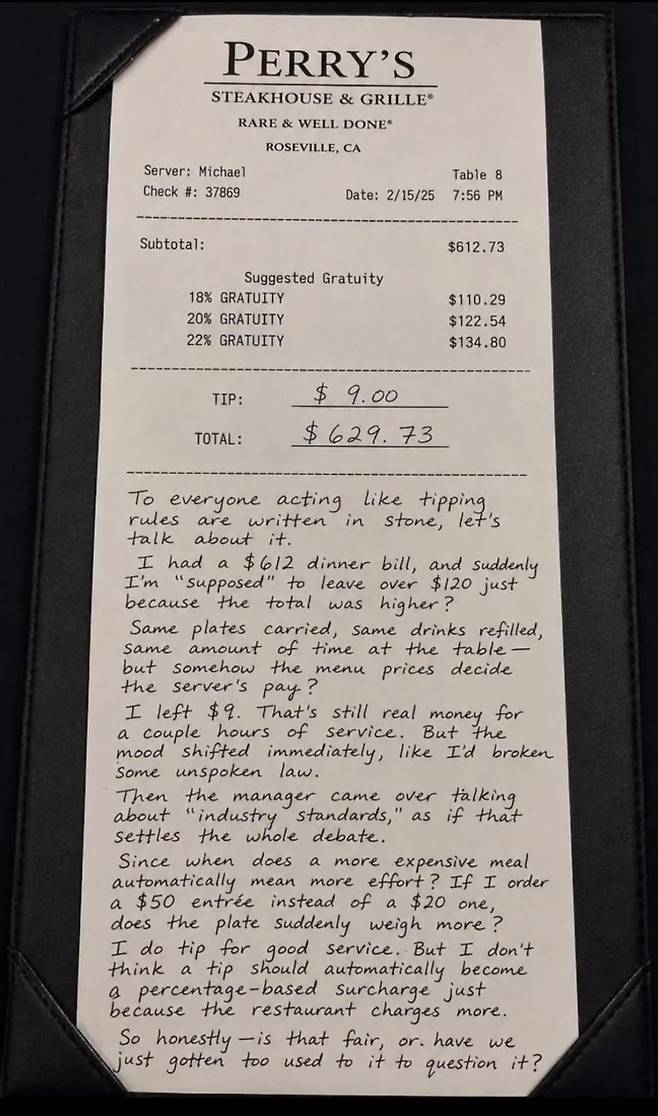 PERRY'S
STEAKHOUSE & GRILLE®
RARE & WELL DONE®
ROSEVILLE, CA
Server: Michael Table 8
Check #: 37869 Date: 2/15/25 7:56 PM
Subtotal: $612.73
Suggested Gratuity
18% GRATUITY $110.29
20% GRATUITY $122.54
22% GRATUITY $134.80
TIP: $ 9.00
TOTAL: $629.73
To everyone acting like tipping
rules are written in stone, let's
talk about it.
I had a $612 dinner bill, and suddenly
I'm "supposed" to leave over $120 just
because the total was higher?
Same plates carried, same drinks refilled,
same amount of time at the table—
but somehow the menu prices decide
the server's pay?
I left $9. That's still real money for
a couple hours of service. But the
mood shifted immediately, like I'd broken
some unspoken law.
Then the manager came over talking
about "industry standards," as if that
settles the whole debate.
Since when does a more expensive meal
automatically mean more effort? If I order
a $50 entrée instead of a $20 one,
does the plate suddenly weigh more?
I do tip for good service. But I don't
think a tip should automatically become
a percentage-based surcharge just
because the restaurant charges more.
So honestly—is that fair, or. have we
just gotten too used to it to question it?